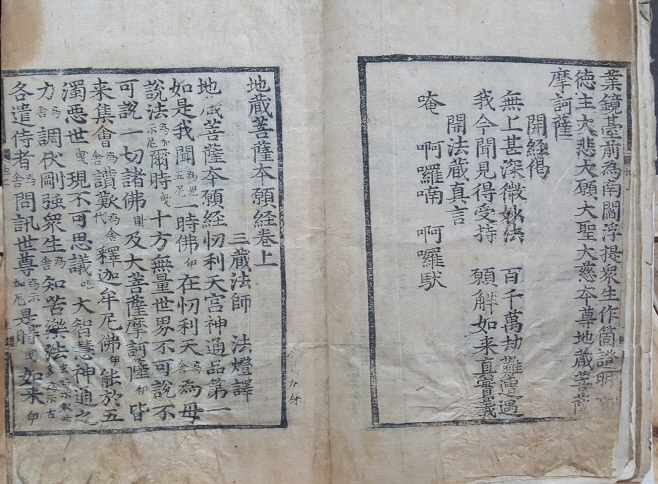 業鏡臺前爲南閻浮提衆生作箇證明功
德主大悲大願大聖大慈本尊地藏菩薩
摩訶薩
開經偈
無上甚深微妙法 百千萬劫難遭遇
我今聞見得受持 願解如来真實義
開法藏真言
唵 啊囉喃 啊囉馱
地蔵菩薩本願經卷上
三蔵法師 法燈譯
地蔵菩薩本願經忉利天宮神通品第一
如是我聞 一時佛 在忉利天 爲母
說法 爾時 十方無量世界不可說不
可說一切諸佛 及大菩薩摩訶薩 皆
来集會 讃歎 釋迦牟尼佛 能於五
濁惡世 現不可思議 大智慧神通之
力 調伏剛強衆生 知苦樂法
各遣侍者 問訊世尊 是時 如来